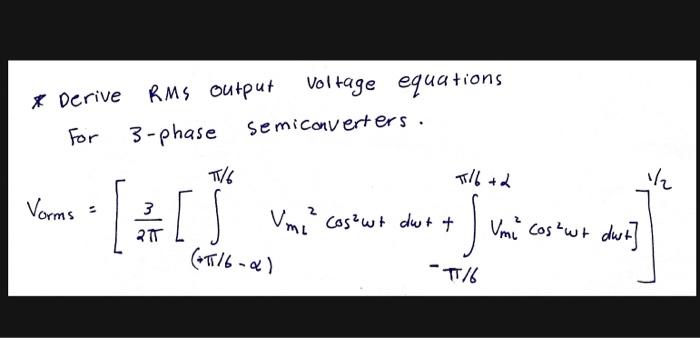 * Derive RMS output voltage equations
For 3-phase semiconverters.
Vorms = [ 3/2π [ ∫_(+π/6 - α)^π/6 VmL² cos²wt dwt + ∫_-π/6^π/6 + α VmL² cos²wt dwt] ]^1/2